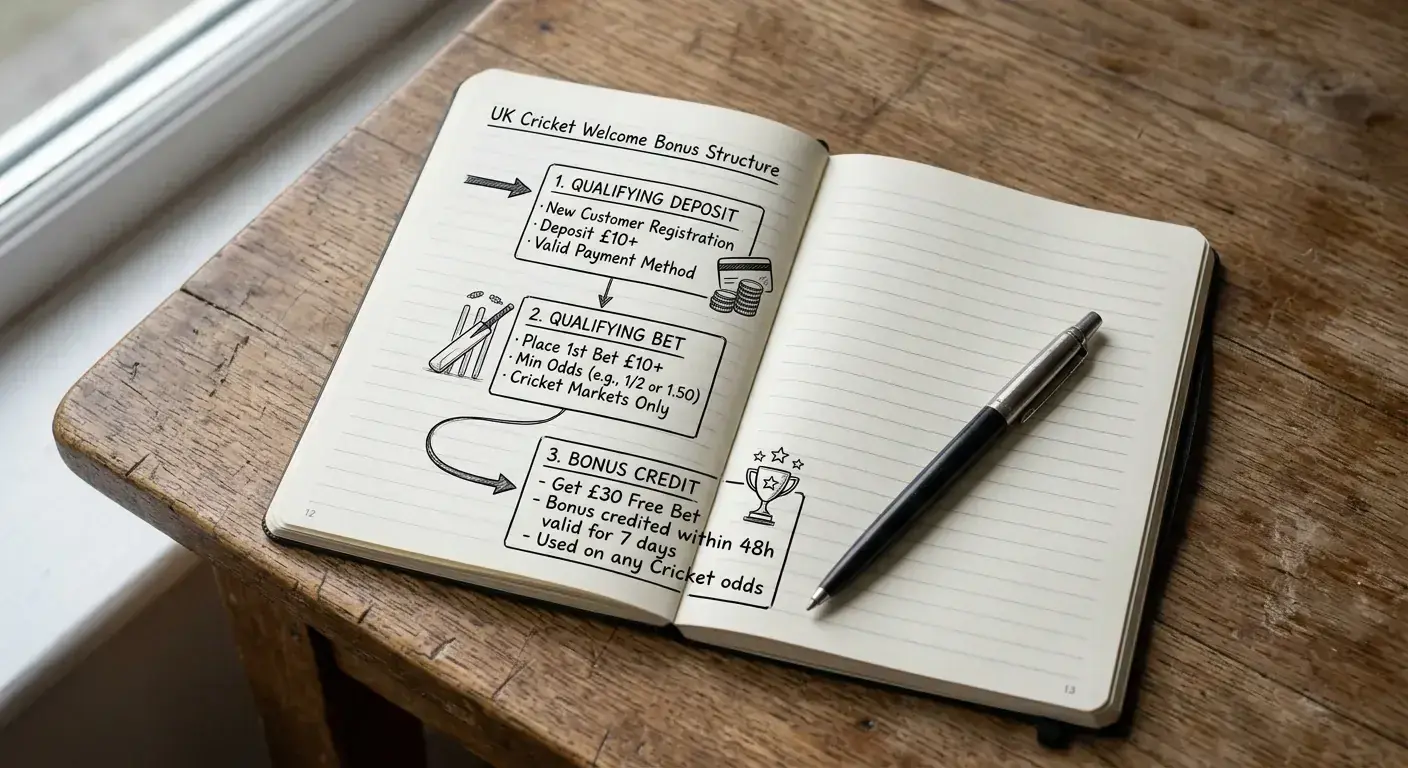 UK Cricket Welcome Bonus Structure
1. QUALIFYING DEPOSIT
· New Customer Registration
· Deposit £10+
· Valid Payment Method
2. QUALIFYING BET
· Place 1st Bet £10+
· Min Odds (e.g., 1/2 or 1.50)
· Cricket Markets Only
3. BONUS CREDIT
- Get £30 Free Bet
- Bonus credited within 48h
valid for 7 days
- Used on any Cricket odds
12
13